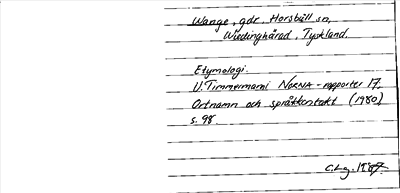 Wange, gdr, Horsbüll sn,
Wiedinghårad, Tyskland.
Etymologi.
U. Timmermann i NORNA-rapporter 17.
Ortnamn och språkkontakt (1980)
s. 98.
C.Lg. 1987.